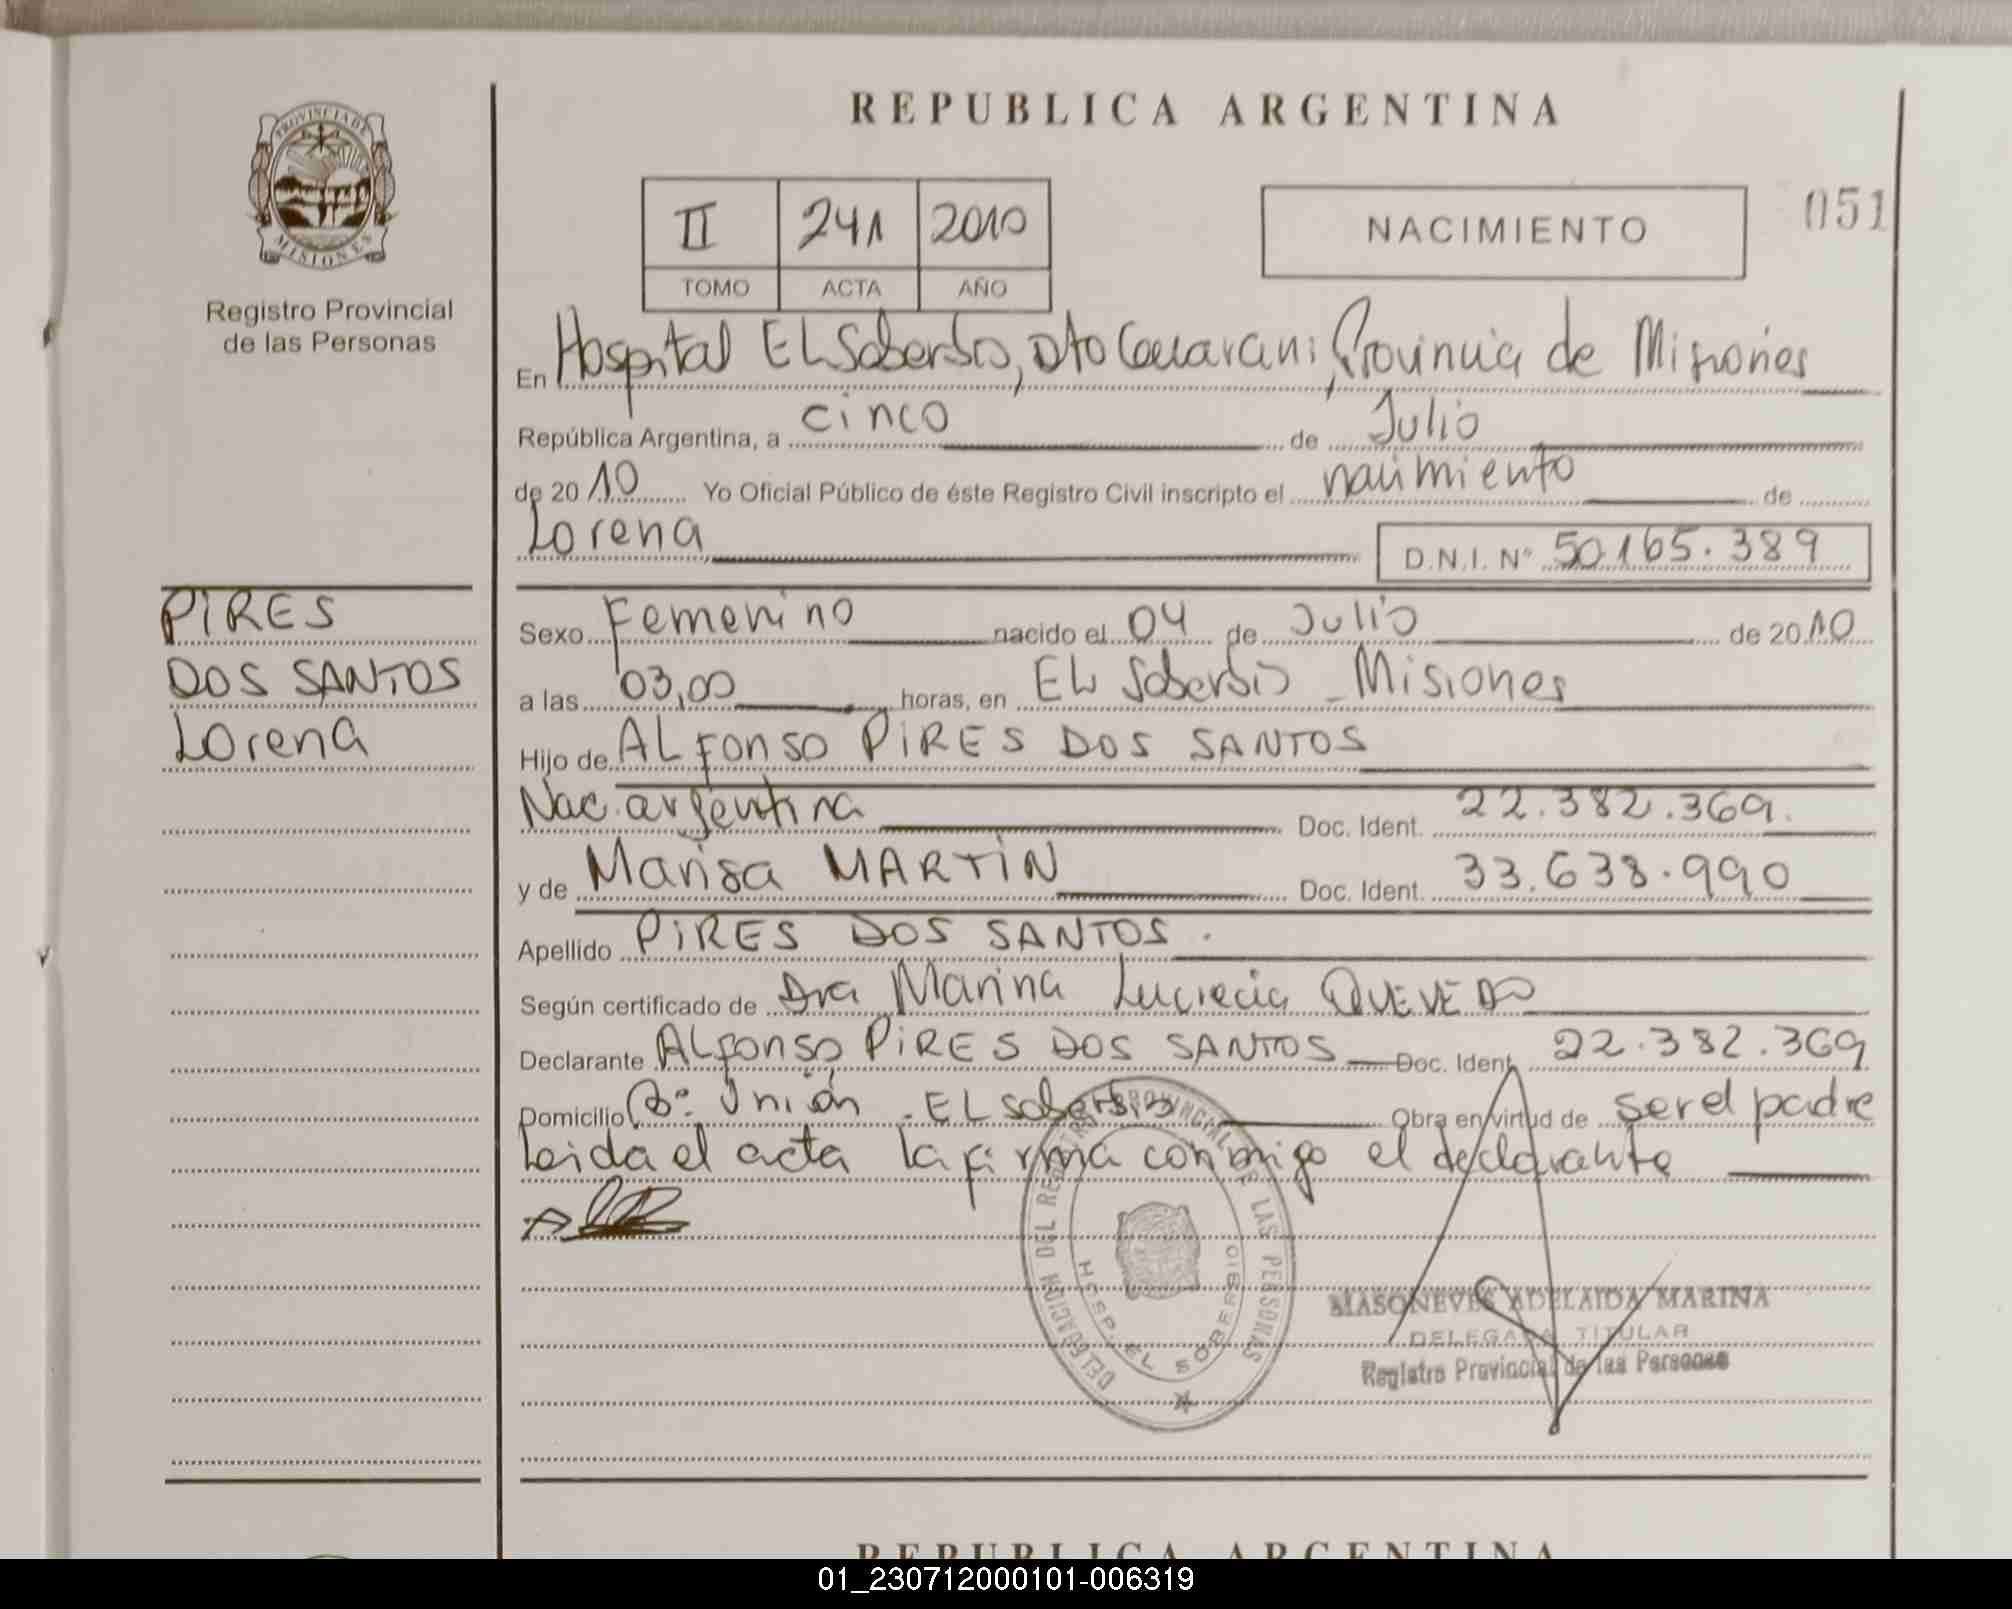 REPUBLICA ARGENTINA
PROVINCIA DE MISIONES
Registro Provincial
de las Personas
II 241 2010
TOMO ACTA AÑO
NACIMIENTO
051
En Hospital EL Soberbio, Dto Guarani, Provincia de Misiones
República Argentina, a cinco de Julio
de 2010 Yo Oficial Público de éste Registro Civil inscripto el nacimiento de
Lorena D.N.I. Nº 50.165.389
PIRES
DOS SANTOS
Lorena
Sexo Femenino nacido el 04 de Julio de 2010
a las 03,00 horas, en EL Soberbio - Misiones
Hijo de ALFonso PIRES DOS SANTOS
Nac. argentina Doc. Ident. 22.382.369.
y de Marisa MARTIN Doc. Ident. 33.638.990
Apellido PIRES DOS SANTOS.
Según certificado de Dra Marina Lucrecia QUEVEDO
Declarante ALFonso PIRES DOS SANTOS Doc. Ident. 22.382.369
Domicilio Bº Unión - EL soberbio Obra en virtud de ser el padre
Leida el acta la firma conmigo el declarante
DELEGACION DEL REGISTRO PROVINCIAL DE LAS PERSONAS
HOSP. EL SOBERBIO
MASONEVES ADELAIDA MARINA
DELEGADA TITULAR
Registro Provincial de las Personas
REPUBLICA ARGENTINA
01_230712000101-006319